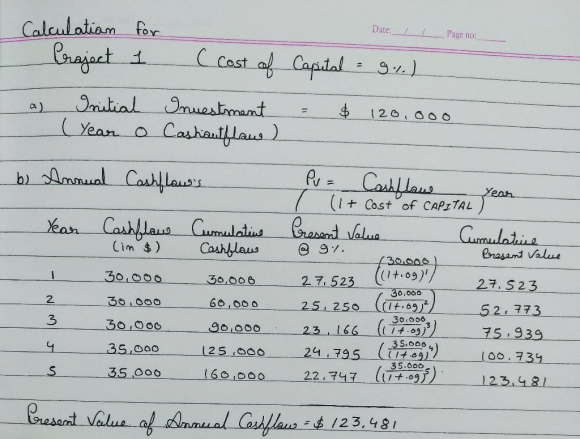 Calculation for
Date: / / Page no:
Project 1 ( Cost of Capital = 9%. )
a) Initial Investment = $ 120,000
( Year 0 Cashoutflow )
b) Annual Cashflow's Pv = Cashflow
( 1 + Cost of CAPITAL ) Year
Year Cashflow Cumulative Present Value Cumulative
(in $) Cashflow @ 9%. Present Value
1 30,000 30,000 27,523 (30,000/(1+.09)¹) 27,523
2 30,000 60,000 25,250 (30,000/(1+.09)²) 52,773
3 30,000 90,000 23,166 (30,000/(1+.09)³) 75,939
4 35,000 125,000 24,795 (35,000/(1+.09)⁴) 100,734
5 35,000 160,000 22,747 (35,000/(1+.09)⁵) 123,481
Present Value of Annual Cashflow = $ 123,481